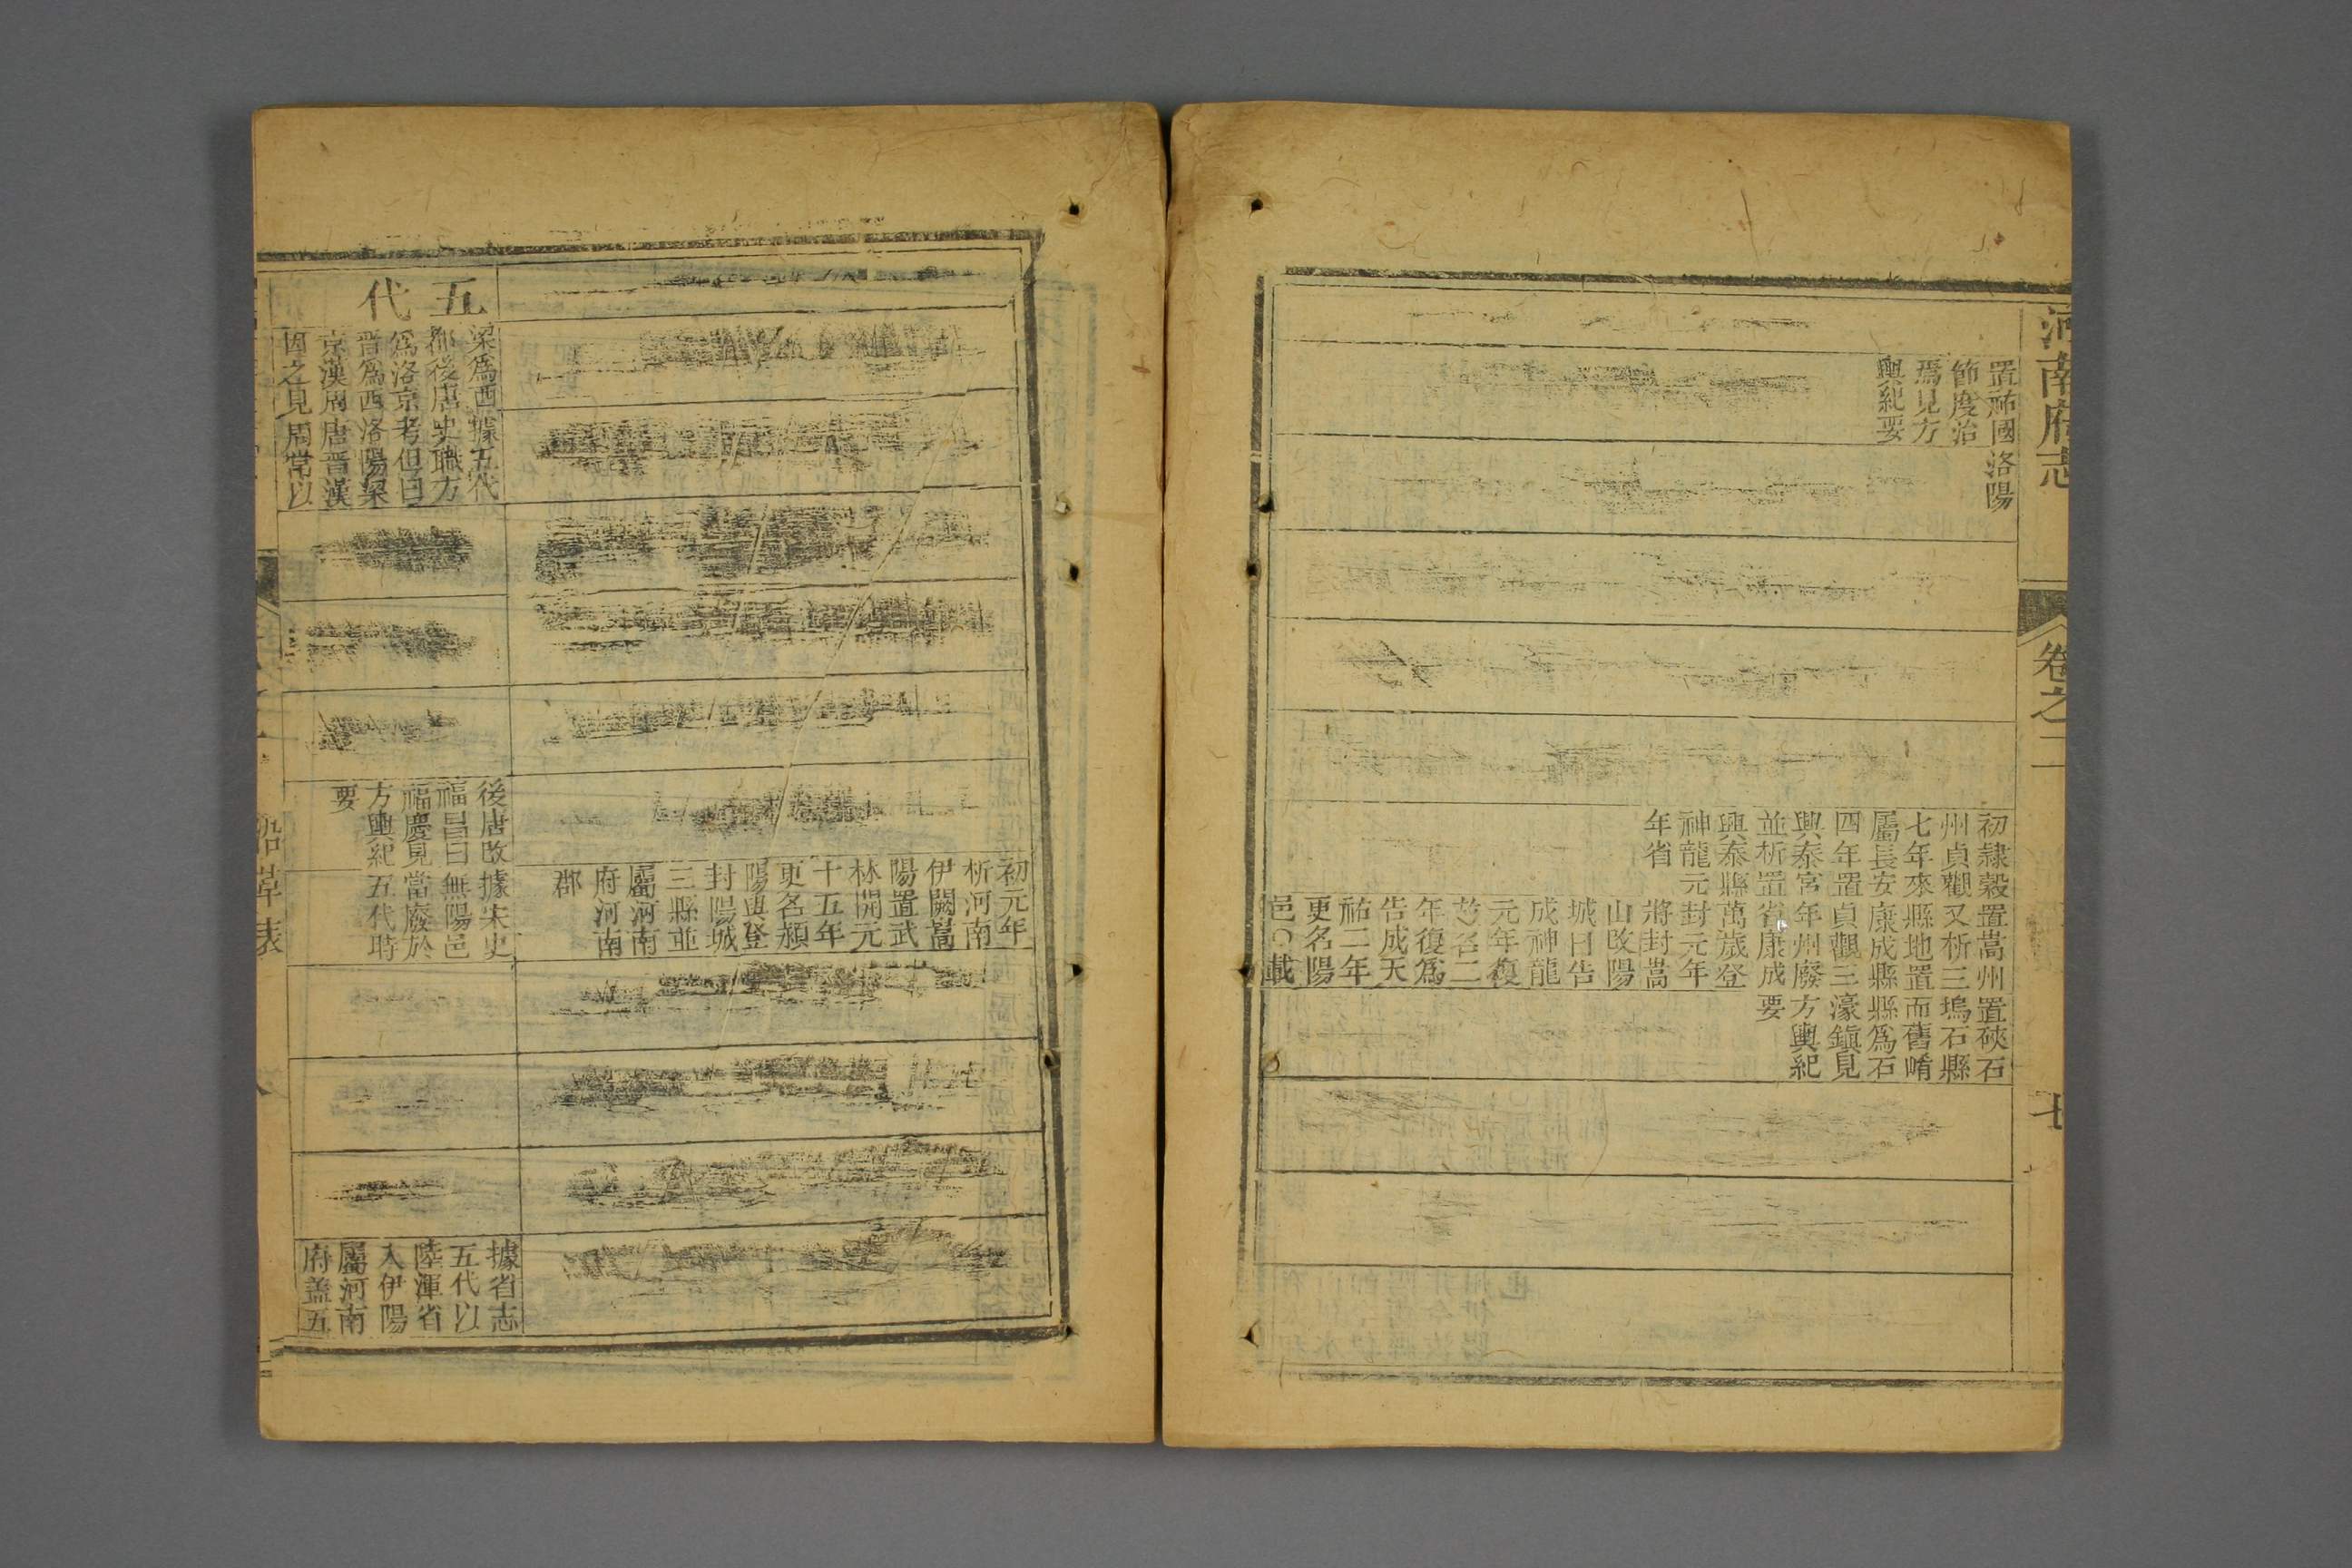 河南府志
卷之二
七
置祐國
節度治
焉見方
輿紀要
洛陽
初隷穀
州貞觀
七年來
屬長安
四年置
興泰宮
並析置
興泰縣
神龍元
年省
置嵩州
又析三
縣地置
康成縣
貞觀三
年州廢
省康成
萬歲登
封元年
將封嵩
山改陽
城曰告
成神龍
元年復
名二
年復爲
告成天
祐二年
更名陽
邑○載
置硤石
塢石縣
而舊崤
縣爲石
濠鎮見
方輿紀
要
初元年
析河南
伊闕嵩
陽置武
林開元
十五年
更名頴
陽與登
封陽城
三縣並
屬河南
府河南
郡
五代
梁爲西
都後唐
爲洛京
晋爲西
京漢周
因之見
據五代
史職方
考但曰
洛陽梁
唐晋漢
周常以
後唐改
福昌曰
福慶見
方輿紀
要
據宋史
無陽邑
當廢於
五代時
據省志
五代以
陸渾省
入伊陽
屬河南
府葢五
沿革表
八